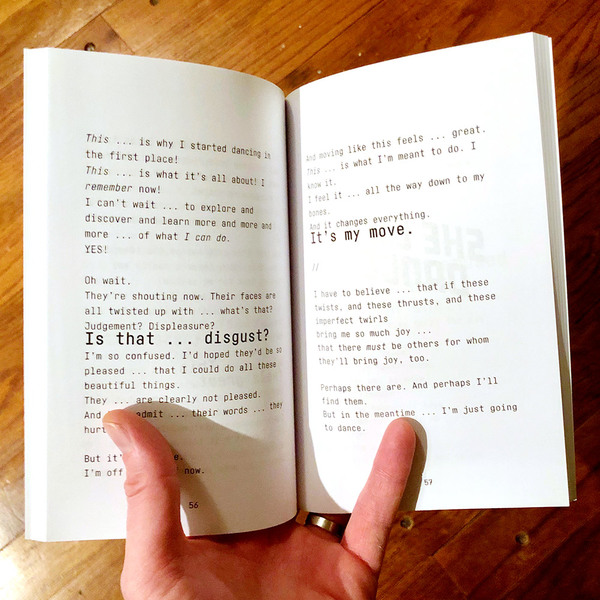 This ... is why I started dancing in
the first place!
This ... is what it's all about! I
remember now!
I can't wait ... to explore and
discover and learn more and more and
more ... of what I can do.
YES!
Oh wait.
They're shouting now. Their faces are
all twisted up with ... what's that?
Judgement? Displeasure?
Is that ... disgust?
I'm so confused. I'd hoped they'd be so
pleased ... that I could do all these
beautiful things.
They ... are clearly not pleased.
And admit ... their words ... they
hurt
But it's
I'm off now.
56
And moving like this feels ... great.
This ... is what I'm meant to do. I
know it.
I feel it ... all the way down to my
bones.
And it changes everything.
It's my move.
//
I have to believe ... that if these
twists, and these thrusts, and these
imperfect twirls
bring me so much joy ...
that there must be others for whom
they'll bring joy, too.
Perhaps there are. And perhaps I'll
find them.
But in the meantime ... I'm just going
to dance.
57